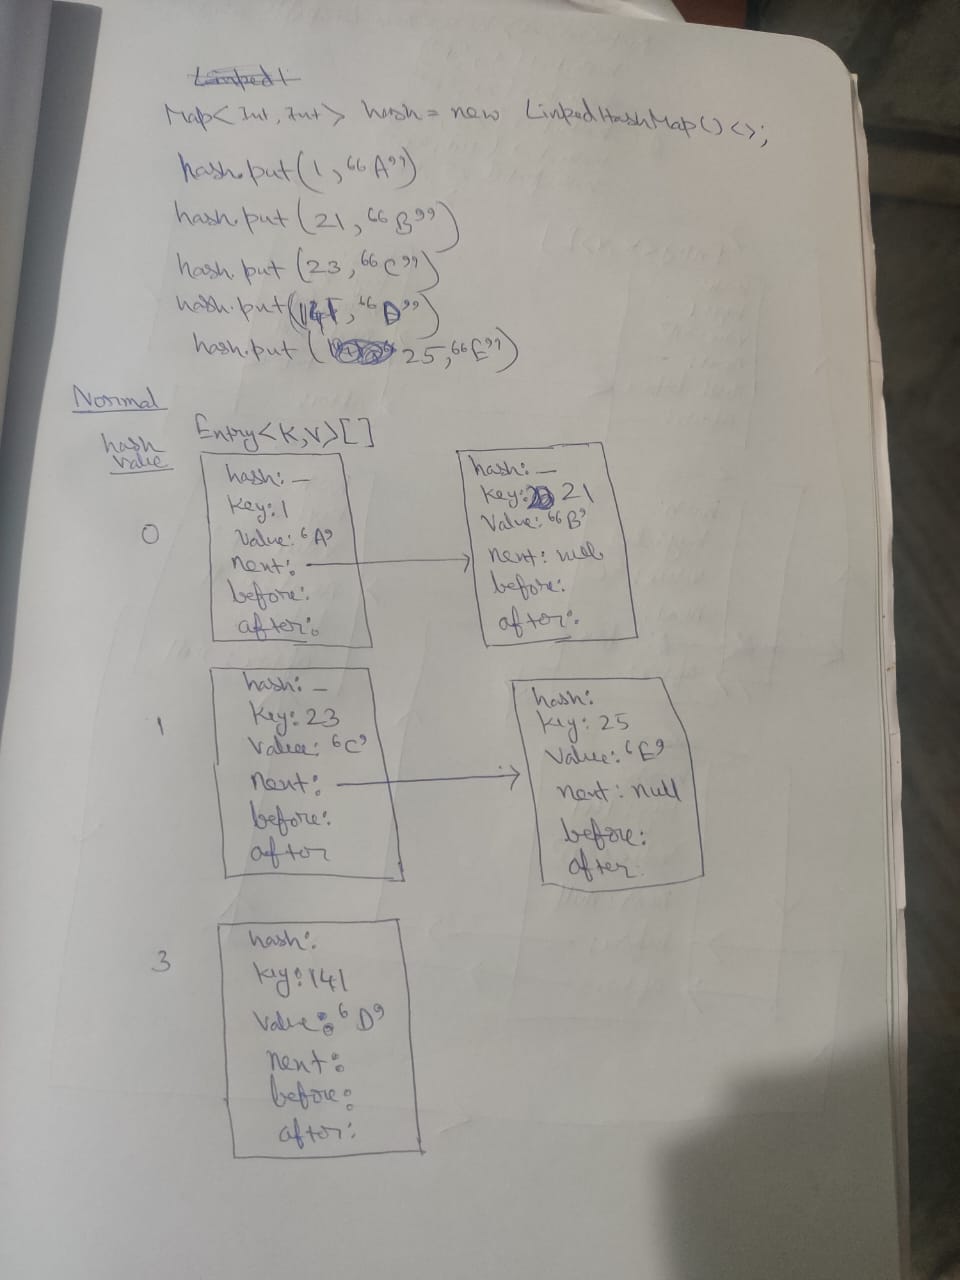 Map<Int, Int> hash = new LinkedHashMap()<>;
hash.put(1, "A")
hash.put(21, "B")
hash.put(23, "C")
hash.put(141, "D")
hash.put(25, "E")
Normal
hash value
Entry<K,V>[]
0
hash: _
Key: 1
Value: 'A'
next:
before:
after:
hash: _
Key: 21
Value: "B'
next: null
before:
after:
1
hash: _
Key: 23
Value: 'C'
next:
before:
after
hash:
Key: 25
Value: 'E'
next: null
before:
after:
3
hash:
Key: 141
Value: 'D'
next:
before:
after: